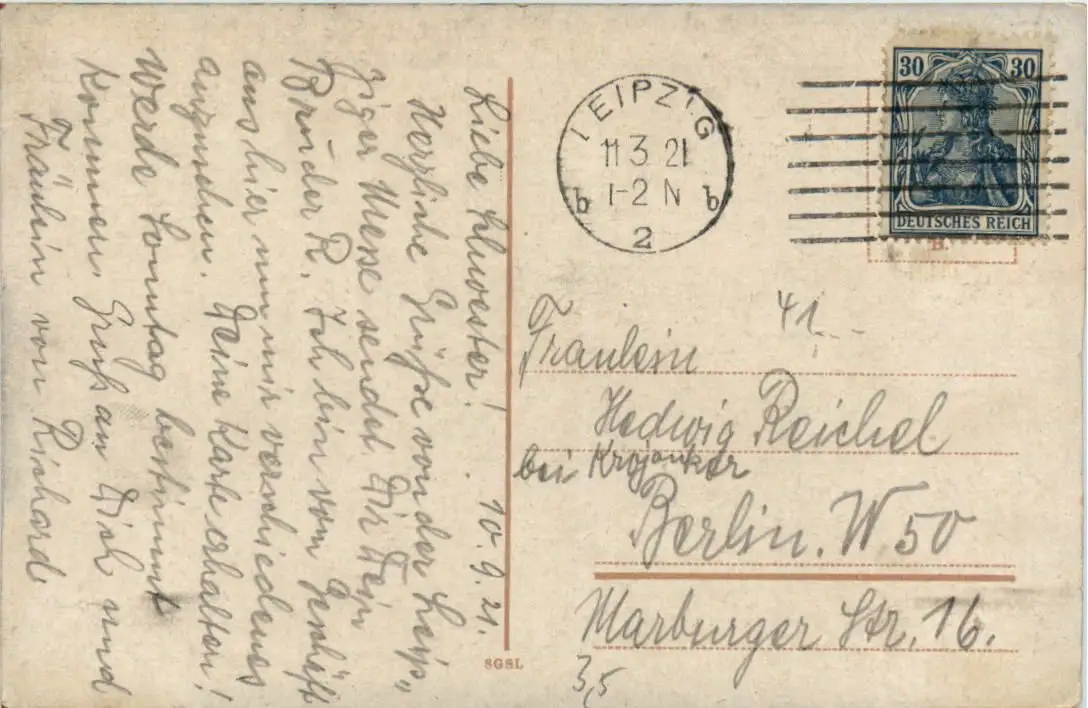 Liebe Schwester! 10. 9. 21.
Herzliche Grüße von der Leip„
ziger Messe sendet Dir Dein
Bruder R. Ich bin vom Geschäft
aus hier um mir verschiedenes
anzusehen. Deine Karte erhalten!
Werde Sonntag bestimmt
kommen. Gruß an Dich und
Fräulein von Richard
LEIPZIG
11 3 21
1-2 N
b b
2
30 30
DEUTSCHES REICH
41
Fräulein
Hedwig Reichel
bei Krojanker
Berlin. W 50
Marburger Str. 16.
3,5
SGSL